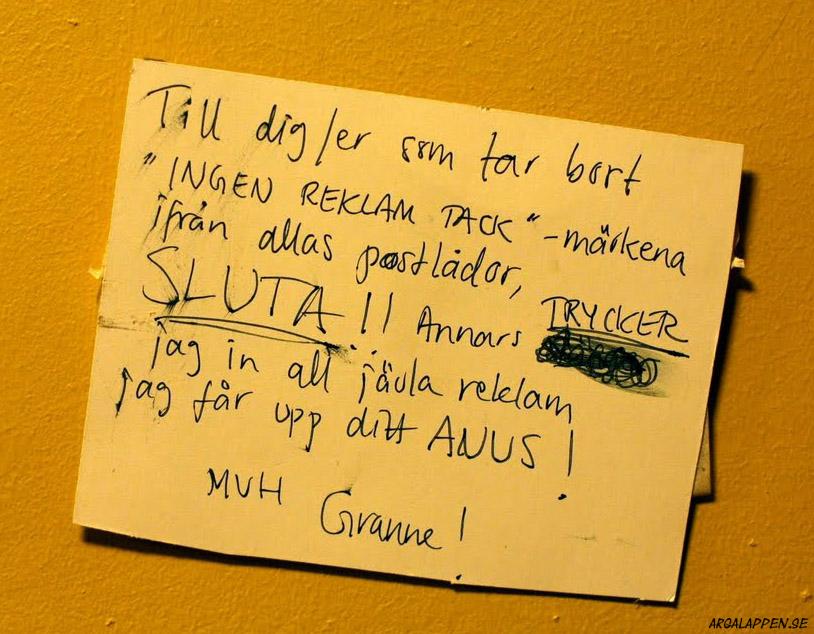 Till dig/er som tar bort
"INGEN REKLAM TACK"-märkena
ifrån allas postlådor,
SLUTA!! Annars TRYCKER
jag in all jävla reklam
jag får upp ditt ANUS!
MVH Granne!
ARGALAPPEN.SE